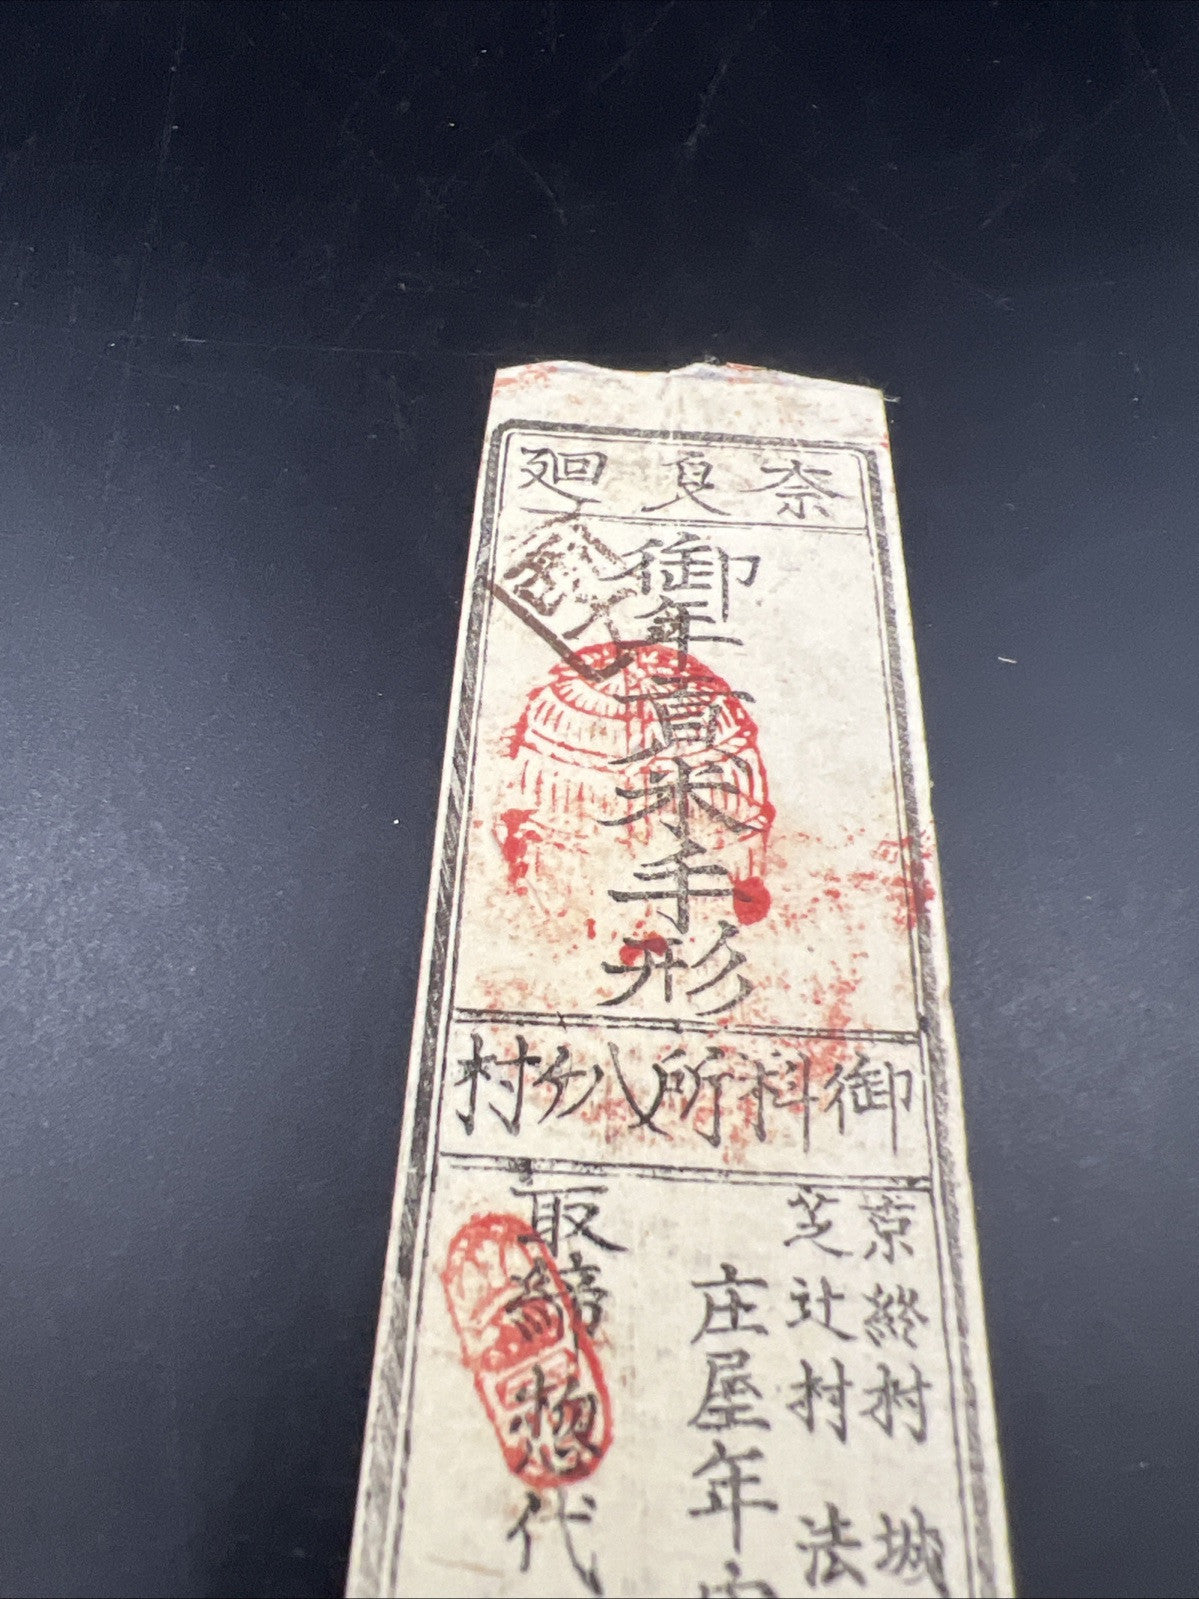 奈良廻
御年貢米手形
御料所八ケ村
京終村 城
芝辻村 法
庄屋年
取締惣代